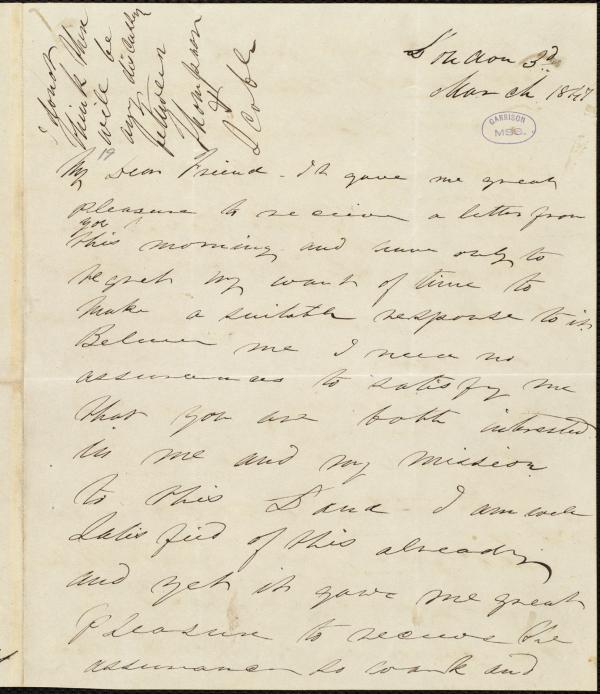 London 3d
March. 1847
GARRISON
MSS.
I do not
think there
will be
any difficulty
between
Thompson
&
Scoble
19
My Dear Friend - It gave me great
pleasure to recieve a letter from
you
this morning and have only to
regret my want of time to
make a suitable response to it.
Believe me I need no
assurances to satisfy me
that you are both interested
in me and my mission
to this Land. I am well
Satisfied of this already
and yet it gave me great
Pleasure to recieve the
assurance so wark and